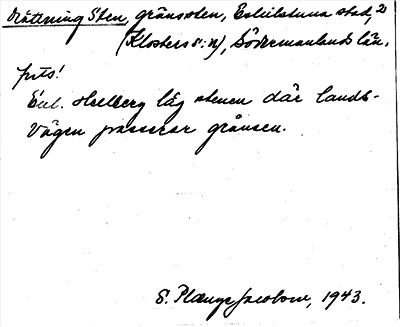 Rättning Sten, gränssten, Eskilstuna stad, 2)
(Klosters s:n), Södermanlands län.
Enl. Hellberg låg stenen där lands-
vägen passerar gränsen.
S. Plænge Jacobson, 1943.